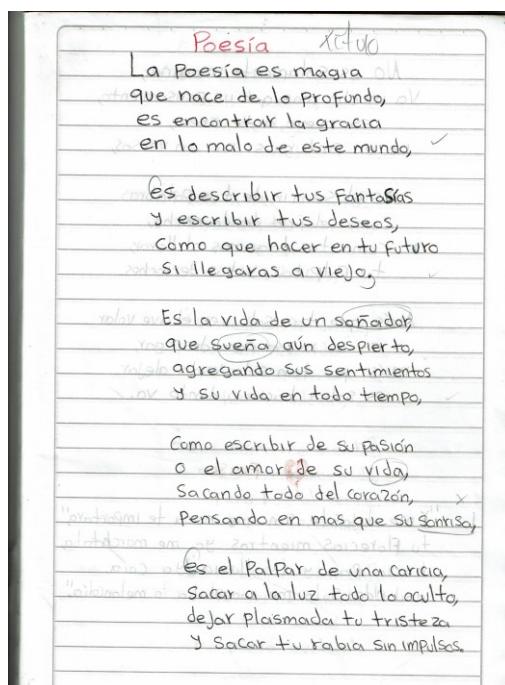 Poesía Xitulo
La Poesía es magia
que nace de lo profundo,
es encontrar la gracia
en lo malo de este mundo,
es describir tus fantasías
y escribir tus deseos,
Como que hacer en tu futuro
Si llegaras a viejo,
Es la vida de un soñador,
que sueña aún despierto,
agregando sus sentimientos
y su vida en todo tiempo,
Como escribir de su pasión
o el amor de su vida,
Sacando todo del corazón,
Pensando en mas que su sonrisa,
es el Palpar de una caricia,
Sacar a la luz todo lo oculto,
dejar plasmada tu tristeza
y Sacar tu rabia sin impulsos.